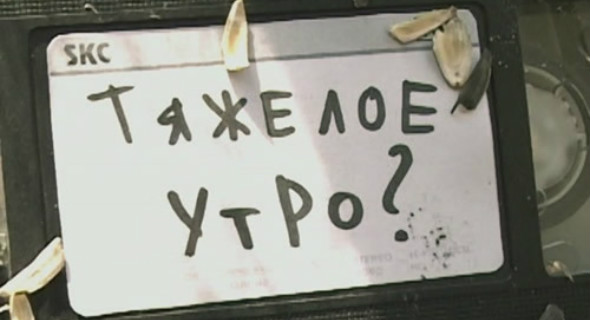 SKC
ТЯЖЕЛОЕ
УТРО?